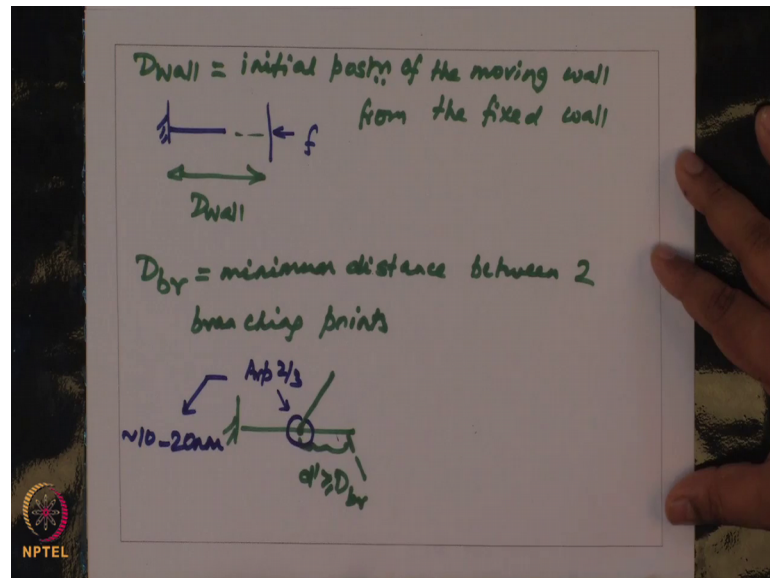 Dwall = initial postn of the moving wall
from the fixed wall
f
Dwall
Dbr = minimum distance between 2
branching points
Arp 2/3
~10-20nm
d' ≥ Dbr
NPTEL